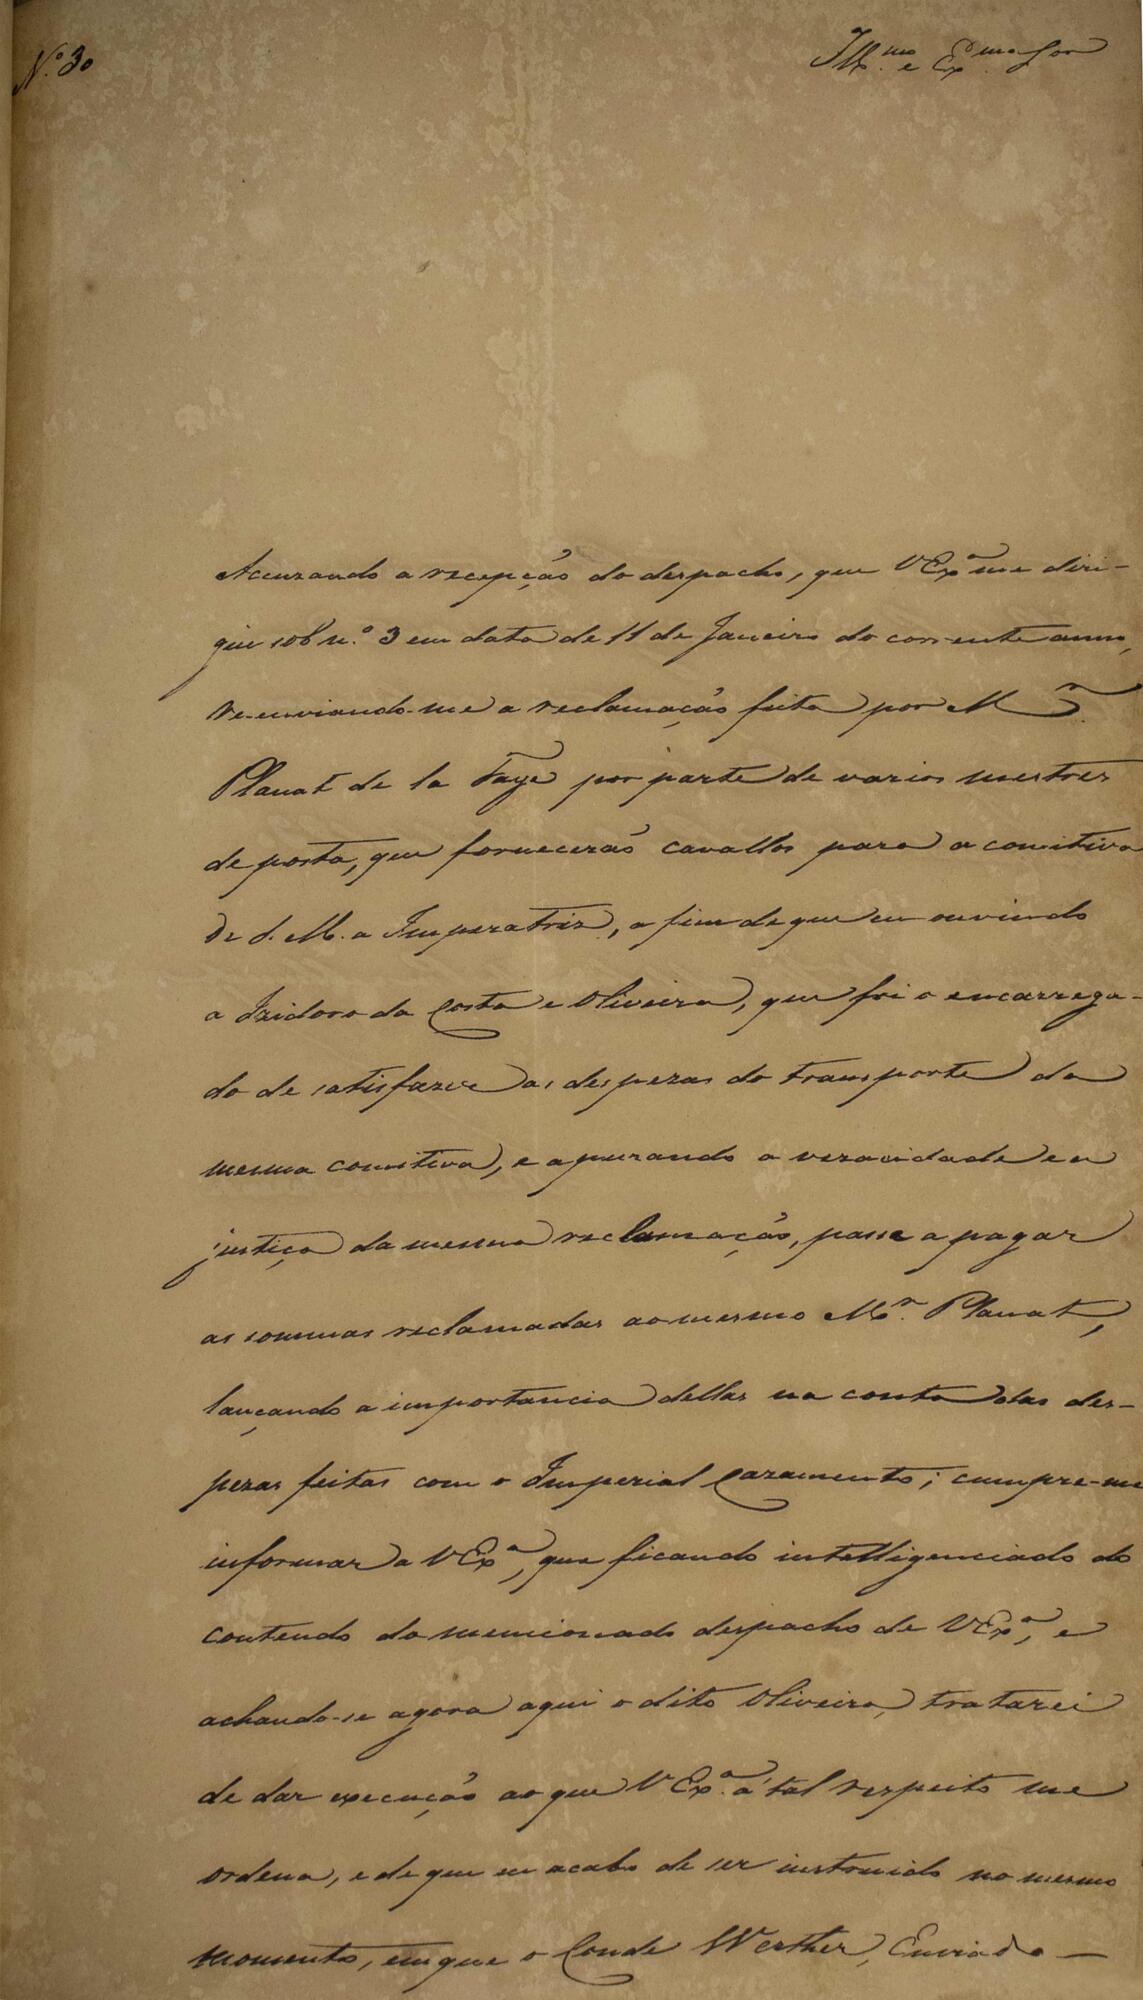 N.º 30
Ill.mo e Ex.mo Snr
Accuzando a recepção do despacho, que V Ex.a me diri-
giu sob n.º 3 em data de 11 de Janeiro do corrente anno,
re-enviando-me a reclamação feita por Mr.
Planat de la Faye por parte de varios mestres
de posta, que fornecerão cavallos para a comitiva
de S. M. a Imperatriz, a fim de que eu ouvindo
a Izidoro da Costa e Oliveira, que foi o encarrega-
do de satisfazer as despezas do transporte da
mesma comitiva, e apurando a veracidade e a
justiça da mesma reclamação, passe a pagar
as sommas reclamadas ao mesmo Mr. Planat,
lançando a importancia dellas na conta das des-
pezas feitas com o Imperial Cazamento; cumpre-me
informar a V Ex.a, que ficando intelligenciado do
contendo do mencionado despacho de V Ex.a, e
achando-se agora aqui o dito Oliveira, tratarei
de dar execução ao que V Ex.a á tal respeito me
ordena, e de que eu acabo de ser instruido no mesmo
momento, em que o Conde Werther, Enviado